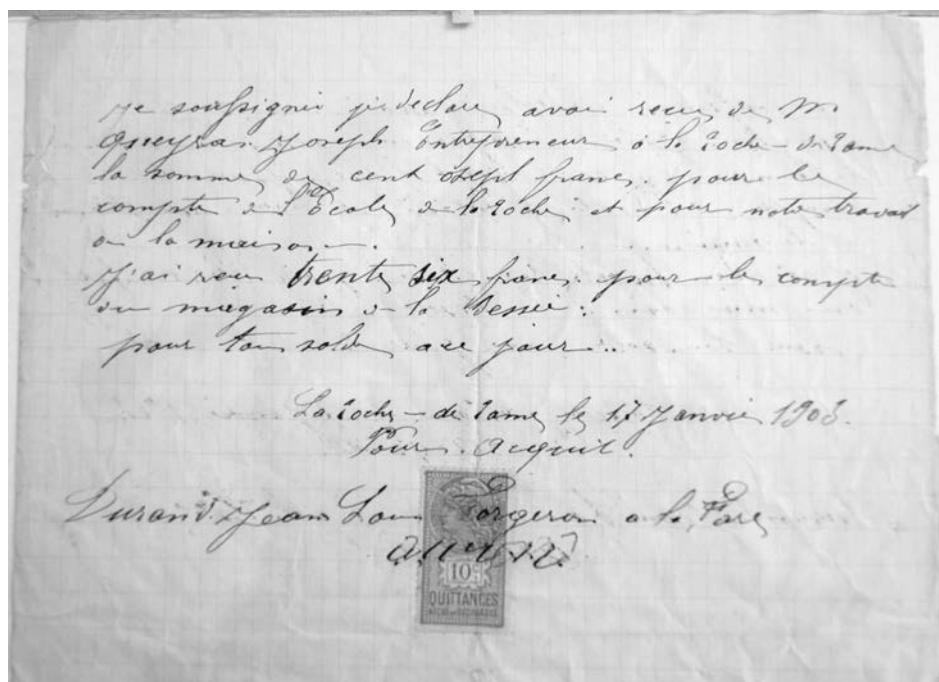 Je soussignié je déclare avoir recu de Mr
Queyras Joseph Entrepreneur à la roche-de rame
la somme de cent sept francs pour le
compte de l'Ecole de la roche et pour notre travail
a la maison.
J'ai recu trente six francs pour le compte
du magasin de la
pour tou solde a ce jour..
La roche-de rame le 17 Janvier 1903.
Pour Acquit.
Durand Jean Louis Forgeron a la
10c
QUITTANCES